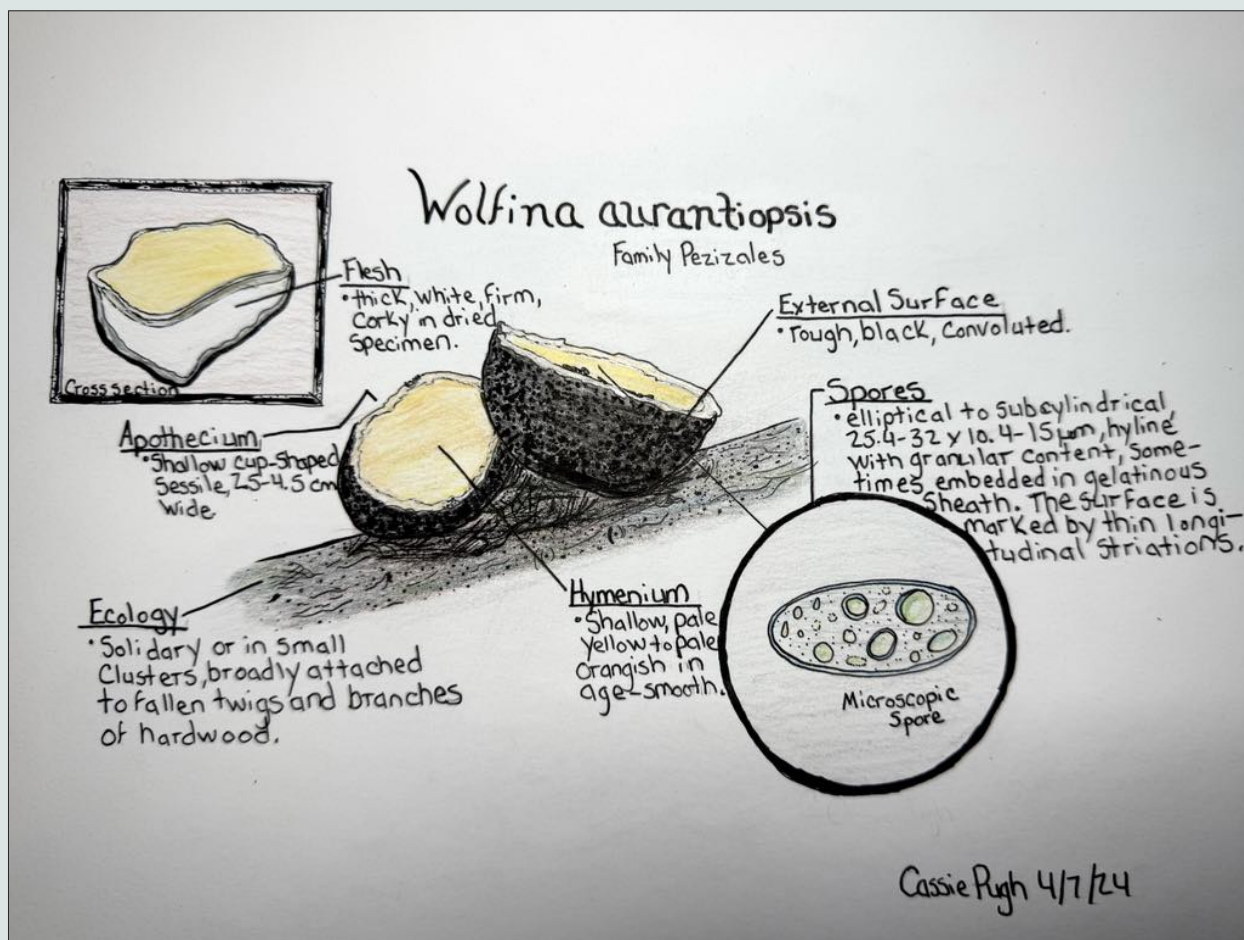 Wolfina aurantiopsis
Family Pezizales
Flesh
• thick, white, firm,
corky in dried
specimen.
Cross section
External Surface
• rough, black, convoluted.
Apothecium
• Shallow cup-shaped
Sessile, 2.5-4.5 cm
wide
Spores
• elliptical to subcylindrical,
25.4-32 x 10.4-15 µm, hyline
with granular content, Some-
times embedded in gelatinous
Sheath. The surface is
marked by thin longi-
tudinal striations.
Ecology
• Solidary or in small
Clusters, broadly attached
to fallen twigs and branches
of hardwood.
Hymenium
• Shallow, pale
yellow to pale
orangish in
age-smooth.
Microscopic
Spore
Cassie Pugh 4/7/24